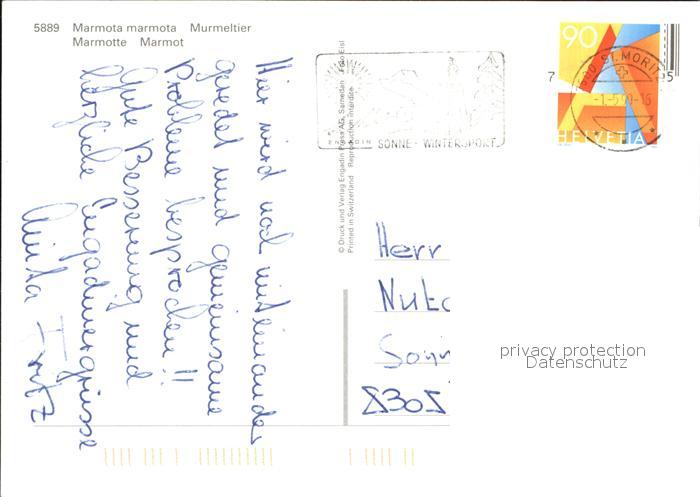 5889 Marmota marmota Murmeltier
Marmotte Marmot
Hier wird noch miteinander
geredet und gemeinsame
Probleme besprochen!!
Gute Besserung und
herzliche Engadinergrüsse
Anita Fritz
© Druck und Verlag Engadin Press AG, Samedan Foto Eisl
Printed in Switzerland Reproduction interdite
ENGADIN SONNE - WINTERSPORT
90
HELVETIA
ST. MORITZ
Herr
Sonn
8302
privacy protection
Datenschutz